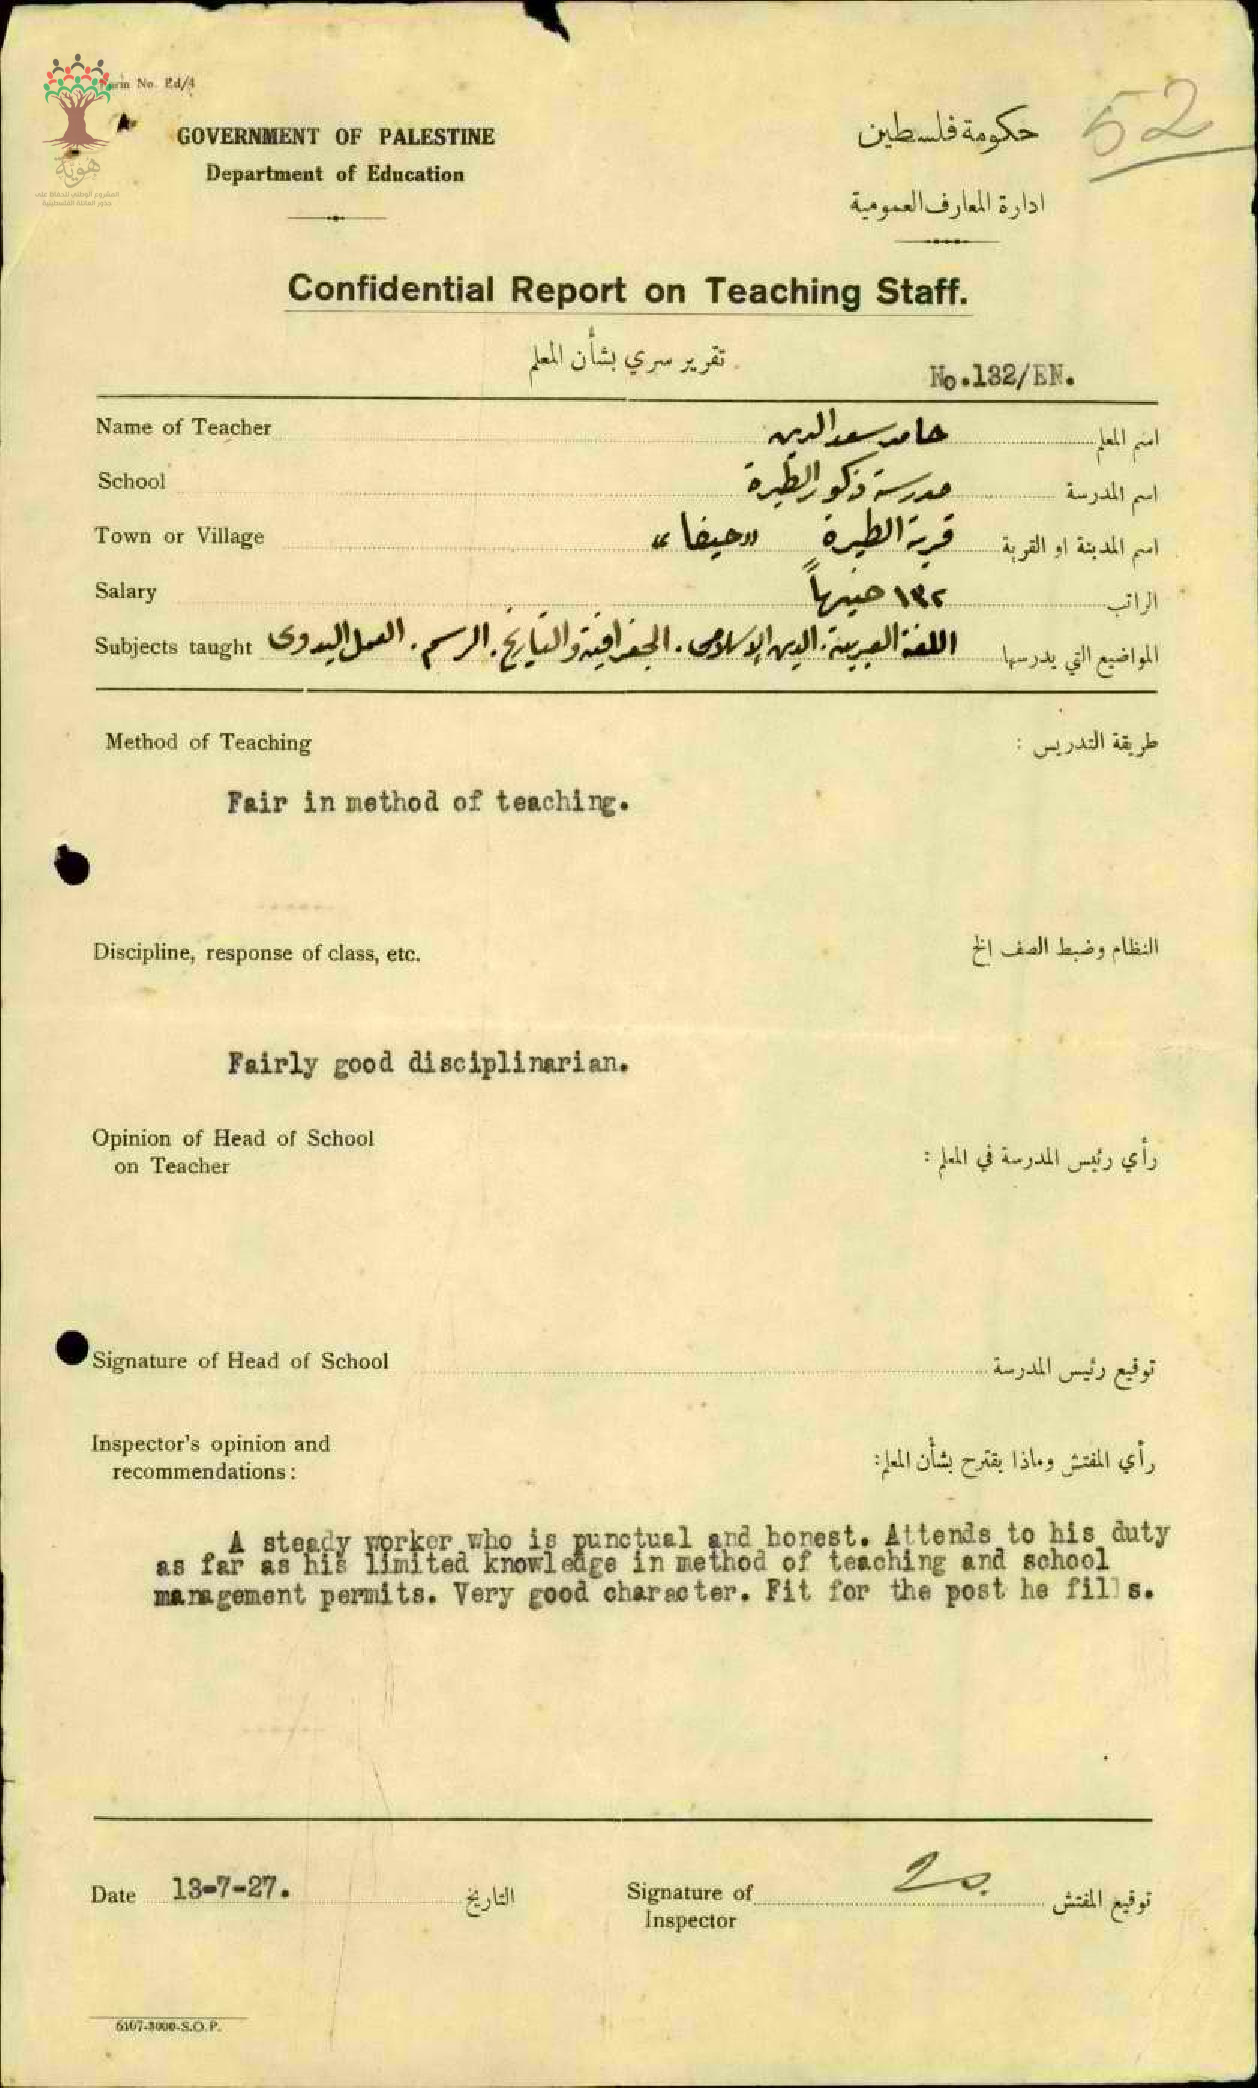 Form No. Ed/4
هوية
المشروع الوطني للحفاظ على
جذور العائلة الفلسطينية
52
GOVERNMENT OF PALESTINE
حكومة فلسطين
Department of Education
ادارة المعارف العمومية
Confidential Report on Teaching Staff.
تقرير سري بشأن المعلم
No.132/EN.
Name of Teacher حامد سعد الدين اسم المعلم
School مدرسة ذكور الطيرة اسم المدرسة
Town or Village قرية الطيرة "حيفا" اسم المدينة او القرية
Salary ١٣٢ جنيهاً الراتب
Subjects taught اللغة العربية. الدين الإسلامي. الجغرافية والتاريخ. الرسم. العمل اليدوي المواضيع التي يدرسها
Method of Teaching طريقة التدريس :
Fair in method of teaching.
Discipline, response of class, etc. النظام وضبط الصف الخ
Fairly good disciplinarian.
Opinion of Head of School
on Teacher
رأي رئيس المدرسة في المعلم :
Signature of Head of School توقيع رئيس المدرسة
Inspector's opinion and
recommendations:
رأي المفتش وماذا يقترح بشأن المعلم:
A steady worker who is punctual and honest. Attends to his duty
as far as his limited knowledge in method of teaching and school
management permits. Very good character. Fit for the post he fills.
Date 13-7-27. التاريخ
Signature of
Inspector
توقيع المفتش
6107-3000-S.O.P.